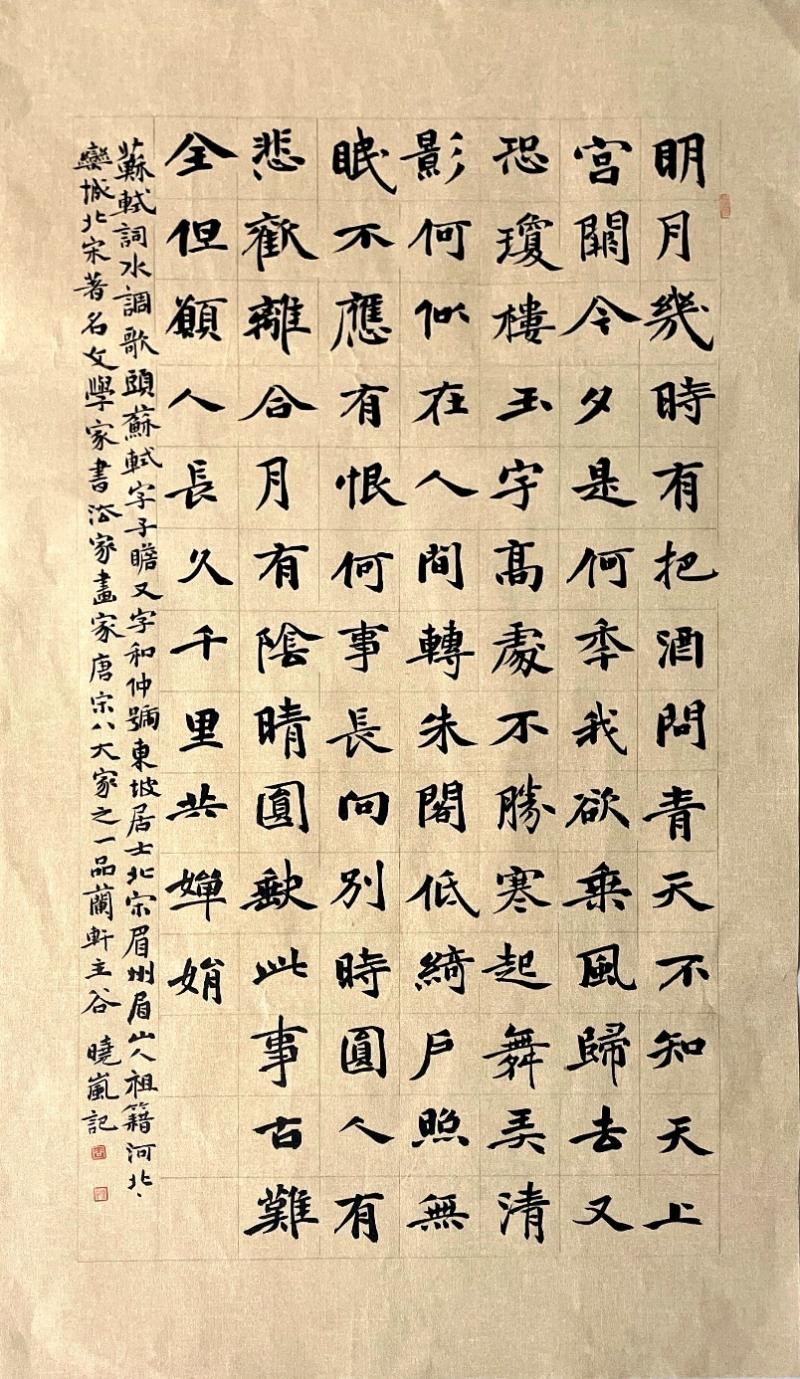 明月幾時有把酒問青天不知天上
宮闕今夕是何年我欲乘風歸去又
恐瓊樓玉宇高處不勝寒起舞弄清
影何似在人間轉朱閣低綺戶照無
眠不應有恨何事長向別時圓人有
悲歡離合月有陰晴圓缺此事古難
全但願人長久千里共嬋娟
蘇軾詞水調歌頭蘇軾字子瞻又字和仲號東坡居士北宋眉州眉山人祖籍河北
欒城北宋著名文學家書法家畫家唐宋八大家之一品蘭軒主谷曉嵐記